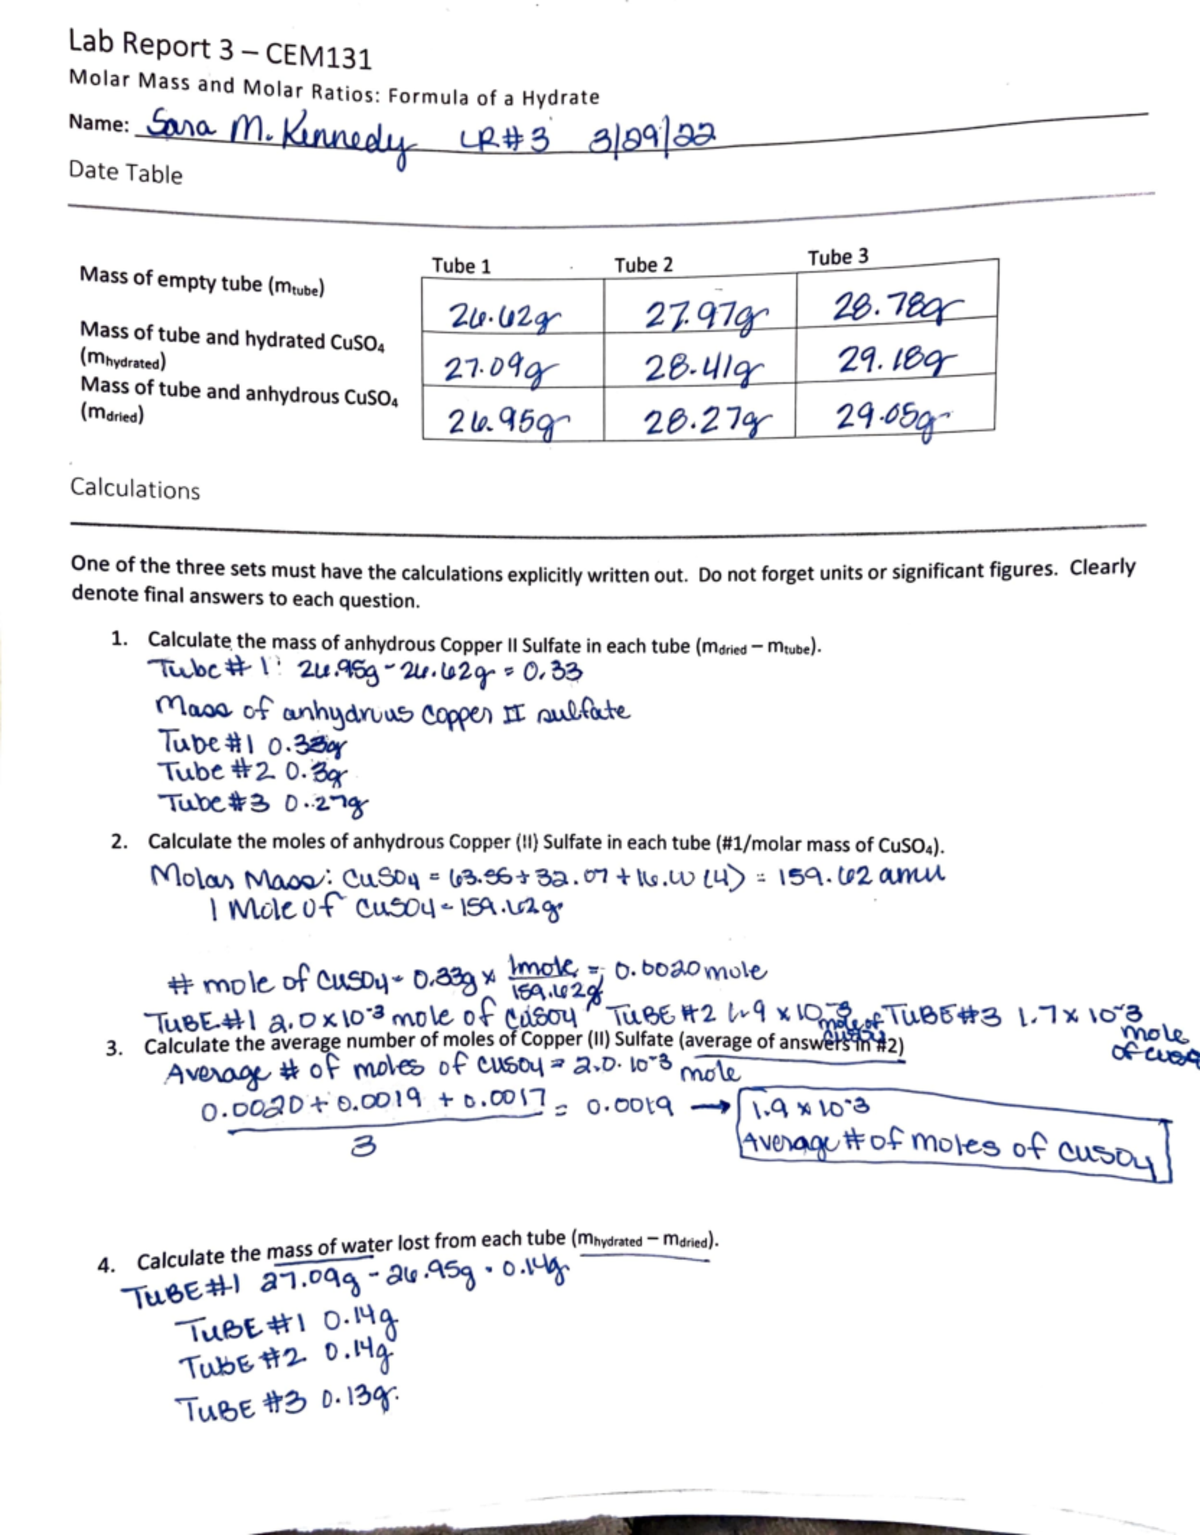 Lab Report 3 – CEM131
Molar Mass and Molar Ratios: Formula of a Hydrate
Name: Sara M. Kennedy LR#3 3/29/22
Date Table
Tube 1 Tube 2 Tube 3
Mass of empty tube (mtube) 26.62g 27.97g 28.78g
Mass of tube and hydrated CuSO4
(mhydrated) 27.09g 28.41g 29.18g
Mass of tube and anhydrous CuSO4
(mdried) 26.95g 28.27g 29.05g
Calculations
One of the three sets must have the calculations explicitly written out. Do not forget units or significant figures. Clearly
denote final answers to each question.
1. Calculate the mass of anhydrous Copper II Sulfate in each tube (mdried – mtube).
Tube # 1: 26.95g - 26.62g = 0.33
Mass of anhydruus Copper II sulfate
Tube #1 0.33g
Tube #2 0.3g
Tube #3 0.27g
2. Calculate the moles of anhydrous Copper (II) Sulfate in each tube (#1/molar mass of CuSO4).
Molar Mass: CuSO4 = 63.55 + 32.07 + 16.00 (4) = 159.62 amu
1 Mole of CuSO4 = 159.62g
# mole of CuSO4 = 0.33g x 1mole / 159.62g = 0.0020 mole
TUBE #1 2.0 x 10-3 mole of CuSO4 TUBE #2 1.9 x 10-3 mole of CuSO4 TUBE #3 1.7 x 10-3 mole of
3. Calculate the average number of moles of Copper (II) Sulfate (average of answers in #2)
Average # of moles of CuSO4 = 2.0. 10-3 mole
0.0020 + 0.0019 + 0.0017 / 3 = 0.0019 → 1.9 x 10-3
Average # of moles of CuSO4
4. Calculate the mass of water lost from each tube (mhydrated – mdried).
TUBE #1 27.09g - 26.95g = 0.14g
TUBE #1 0.14g
TUBE #2 0.14g
TUBE #3 0.13g.